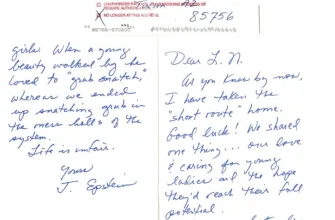 NO LONGER AT THIS
85756
Dear L. N.
As you know by now,
I have taken the
"short route" home.
Good luck! We shared
one thing... our love
& caring for young
ladies and the hope
they'd reach their full
potential.
girls. When a young
beauty walked by he
loved to "grab snatch,"
whereas we ended
up snatching grub in
the mess halls of the
system.
Life is unfair.
Yours
J. Epstein